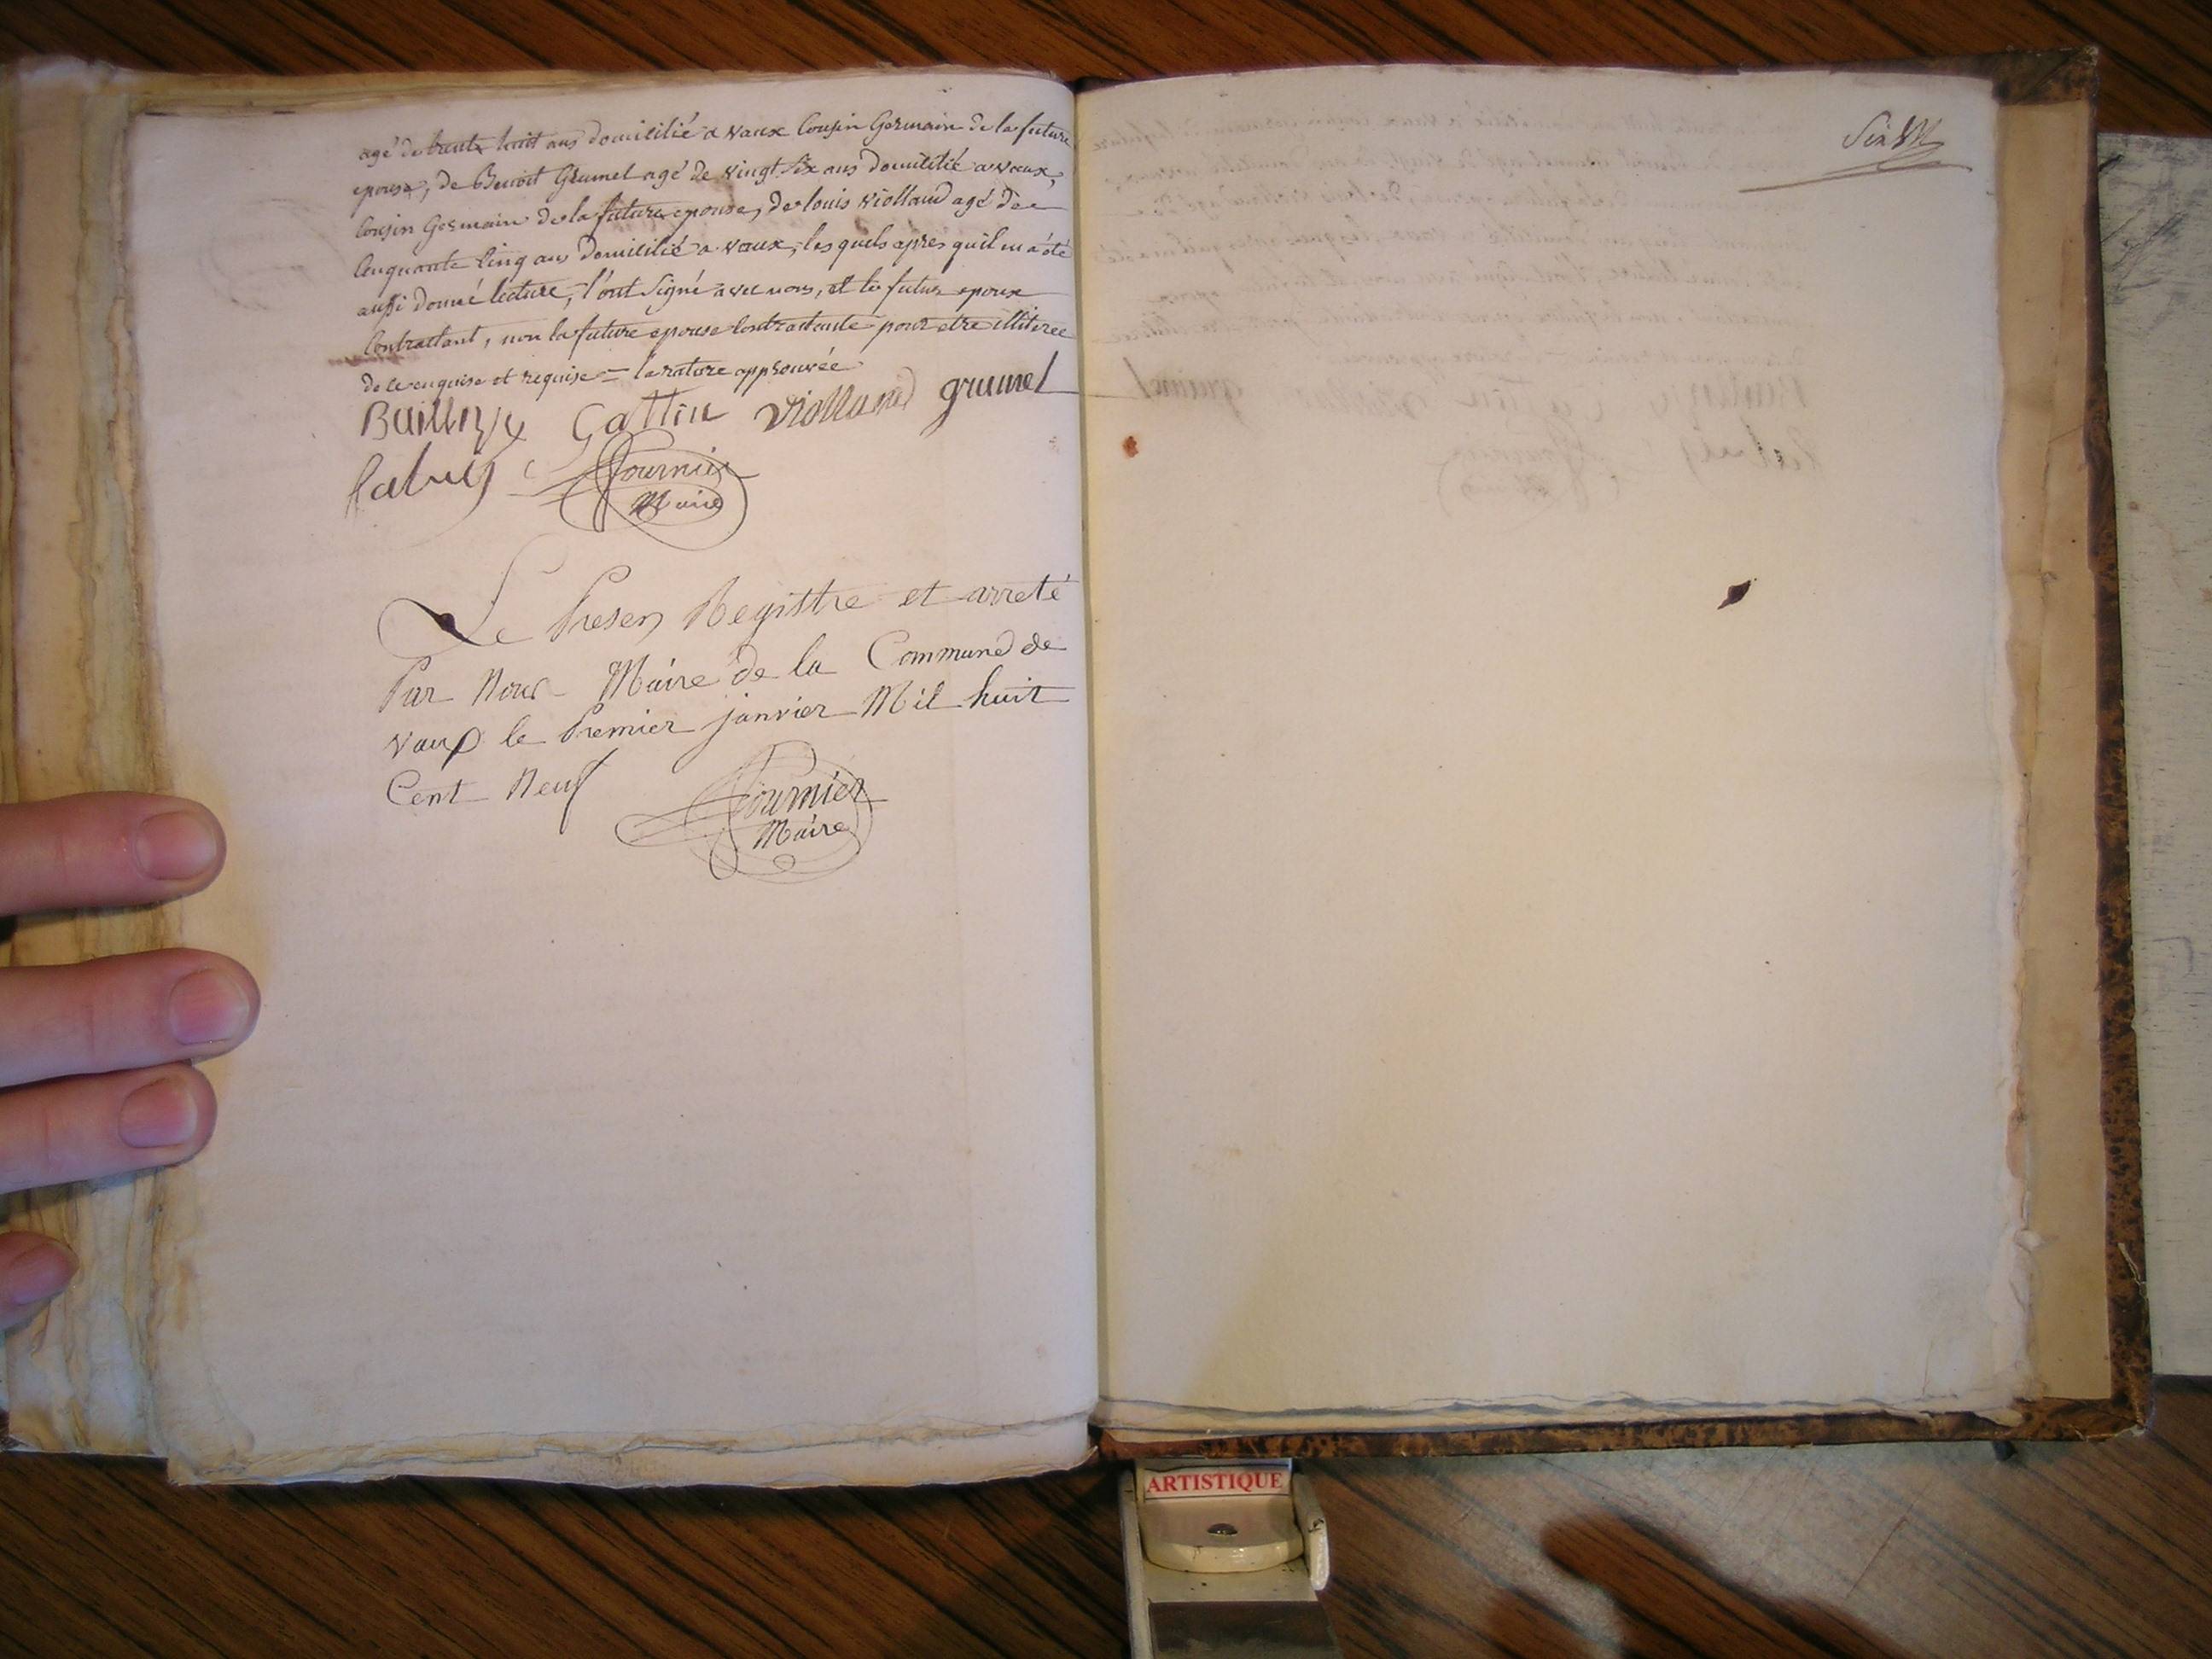 agé de trente huit ans domicilié a vaux Cousin Germain de la future
epouse, de Benoit Grumel agé de vingt Six ans domicilié a vaux,
Cousin Germain de la future epouse, de louis Violland agé de
Cinquante Cinq ans domicilié a vaux, les quels apres qu'il en a été
aussi donné lecture, l'ont Signé avec nous, et le futur epoux
Contractant, non la future epouse Contractante pour etre illiteree
de ce enquise et requise = la rature approuvée
Gattin Violland grumel
Fournier
Maire
Le Presen Registre et arreté
Par Nous Maire de la Commune de
vaux le Premier janvier Mil huit
Cent Neuf
Fournier
Maire
Six
ARTISTIQUE